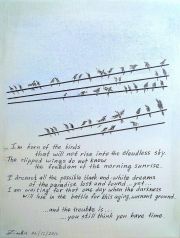 ... I'm torn of the birds
that will not rise into the cloudless sky.
The clipped wings do not know
the freedom of the morning sunrise...
I dreamt all the possible black and white dreams
of the paradise lost and found... yet...
I am waiting for that one day when the darkness
will hide in the battle for this aging, warmant ground.
... and the trouble is...
... you still think you have time.